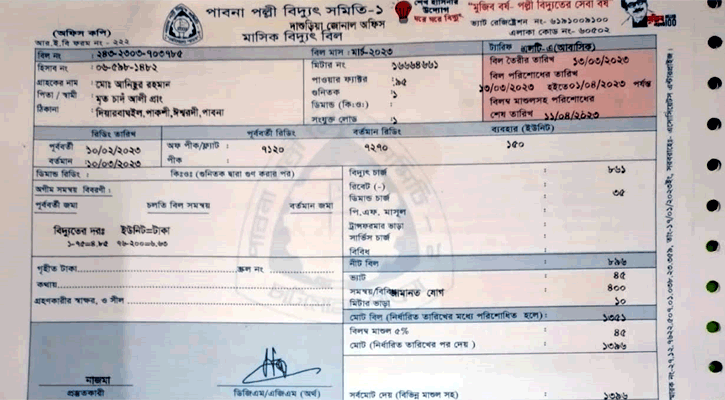 পাবনা পল্লী বিদ্যুৎ সমিতি-১
দাশুড়িয়া জোনাল অফিস
মাসিক বিদ্যুৎ বিল
(অফিস কপি)
আর.ই.বি ফরম নং - ২২২
শেখ হাসিনার
উদ্যোগ
ঘরে ঘরে বিদ্যুৎ
"মুজিব বর্ষ- পল্লী বিদ্যুতের সেবা বর্ষ"
ভ্যাট রেজিষ্ট্রেশন নং- ৬১৯১০০৯১০০
এলাকা কোড নং- ৬০৫০২
বিল নং : ২৪৩-২৩০৩-৭০৩৭৮৫
বিল মাস : মার্চ-২০২৩
ট্যারিফ এলটি-এ(আবাসিক)
হিসাব নং : ০৬-৫৯৮-১৪৮২
মিটার নং : ১৬৬৬৪৬৬১
বিল তৈরীর তারিখ ১৩/০৩/২০২৩
গ্রাহকের নাম : মোঃ আনিছুর রহমান
পাওয়ার ফ্যাক্টর : .৯৫
বিল পরিশোধের তারিখ
পিতা / স্বামী : মৃত চাদ আলী প্রাং
গুনিতক : ১
১৩/০৩/২০২৩ হইতে০১/০৪/২০২৩ পর্যন্ত
ঠিকানা : দিয়ারবাঘইল,পাকশী,ঈশ্বরদী,পাবনা
ডিমান্ড (কিঃওঃ) :
বিলম্ব মাশুলসহ পরিশোধের
সংযুক্ত লোড : ১
শেষ তারিখ ১১/০৪/২০২৩
রিডিং তারিখ পূর্ববর্তী রিডিং বর্তমান রিডিং ব্যবহার (ইউনিট)
পূর্ববর্তী ১০/০২/২০২৩ অফ পীক/ফ্ল্যাট : ৭১২০ ৭২৭০ ১৫০
বর্তমান : ১০/০৩/২০২৩ পীক :
ডিমান্ড রিডিং : কিঃওঃ (গুনিতক দ্বারা গুণ করার পর)
বিদ্যুৎ চার্জ : ৮৬১
অগ্রীম সমন্বয় বিবরণী :
রিবেট (-) :
ডিমান্ড চার্জ : ৩৫
পূর্ববর্তী জমা চলতি বিল সমন্বয় বর্তমান জমা
পি.এফ. মাসুল :
ট্রান্সফরমার ভাড়া :
বিদ্যুতের দরঃ ইউনিট=টাকা
সার্ভিস চার্জ :
১-৭৫=৪.৮৫ ৭৬-২০০=৬.৬৩
বিবিধ :
নীট বিল : ৮৯৬
গৃহীত টাকা
স্ক্রল নং
ভ্যাট : ৪৫
কথায়
সমন্বয়/বিবিধ জামানত যোগ : ৪০০
মিটার ভাড়া : ১০
গ্রহণকারীর স্বাক্ষর, ও সীল
মোট বিল (নির্ধারিত তারিখের মধ্যে পরিশোধিত হলে) : ১৩৫১
বিলম্ব মাশুল ৫% : ৪৫
মোট (নির্ধারিত তারিখের পর দেয় ) : ১৩৯৬
নাজমা
প্রস্তুতকারী
ডিজিএম/এজিএম (অর্থ)
সর্বমোট দেয় (বিভিন্ন মাশুল সহ) : ১৩৯৬